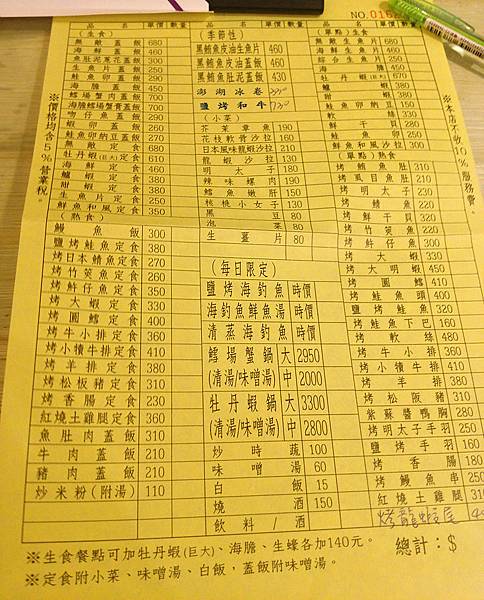 NO.016
品名 單價 數量
(生食)
無敵蓋飯 680
海鮮蓋飯 460
魚肚泥蔥花蓋飯 300
生魚片蓋飯 250
鮭魚卵蓋飯 290
海膽蓋飯 450
鱈場蟹肉蓋飯 700
海膽鱈場蟹膏蓋飯 700
吻仔魚蓋飯 290
蝦卵蓋飯 260
鮭魚卵納豆蓋飯 300
無敵定食 680
牡丹蝦(巨大)定食 610
海鮮定食 460
鱈蟹定食 380
甜蝦定食 350
生魚片定食 250
鮮魚和風定食 350
(熟食)
鰻魚飯 300
鹽烤鮭魚定食 380
烤日本鯖魚定食 270
烤竹筴魚定食 260
烤鮮仔魚定食 350
烤大蝦定食 330
烤圓鱈定食 400
烤牛小排定食 360
烤小犢牛排定食 410
烤羊排定食 380
烤松板豬定食 310
烤香腸定食 230
紅燒土雞腿定食 360
魚肚肉蓋飯 310
牛肉蓋飯 210
豬肉蓋飯 210
炒米粉(附湯) 110
品名 單價 數量
(季節性)
黑鮪魚皮油生魚片 460
黑鮪魚皮油蓋飯 460
黑鮪魚肚泥蓋飯 430
澎湖冰卷
鹽烤和牛
(小菜)
芥茉章魚 190
花枝軟骨沙拉 160
日本風味龍蝦沙拉 210
龍蝦沙拉 130
明太子 180
辣味螺肉 190
鱈魚鰍肝 150
桃桃小女子 130
黑豆 80
泡菜 80
生薑片 80
(每日限定)
鹽烤海釣魚 時價
海釣魚鮮魚湯 時價
清蒸海釣魚 時價
鱈場蟹鍋 大 2950
(清湯/味噌湯) 中 2000
牡丹蝦鍋 大 3300
(清湯/味噌湯) 中 2800
炒時蔬 100
味噌湯 60
白飯 15
燒酒 150
飲料/酒
品名 單價 數量
(單點)生食
無敵生魚片 680
海鮮生魚片 460
綜合生魚片 250
海膽 450
牡丹蝦(巨大) 670
龍蝦 380
甜蝦 380
鮭魚卵納豆 150
軟絲 350
鮮干貝 330
鮭魚卵 250
鮮魚和風沙拉 300
(單點)熟食
烤鮪魚肚 310
烤虱目魚肚 210
烤明太子 220
烤鯖魚 220
烤鮮干貝 320
烤竹筴魚 220
烤鮮仔魚 300
烤大蝦 330
烤大明蝦 450
烤圓鱈 410
烤鮭魚頭 400
鹽烤鮭魚 320
烤鮭魚下巴 160
烤軟絲 480
烤牛小排 360
烤小犢牛排 410
烤羊排 380
烤松阪豬 310
紫蘇醬鴨胸 280
烤明太子手羽 250
鹽烤手羽 160
烤香腸 180
烤鰻魚串 250
紅燒土雞腿 310
烤龍蝦尾
※價格均含5%營業稅。
※本店不收10%服務費。
※生食餐點可加牡丹蝦(巨大)、海膽、生蠔各加140元。
總計：$
※定食附小菜、味噌湯、白飯，蓋飯附味噌湯。